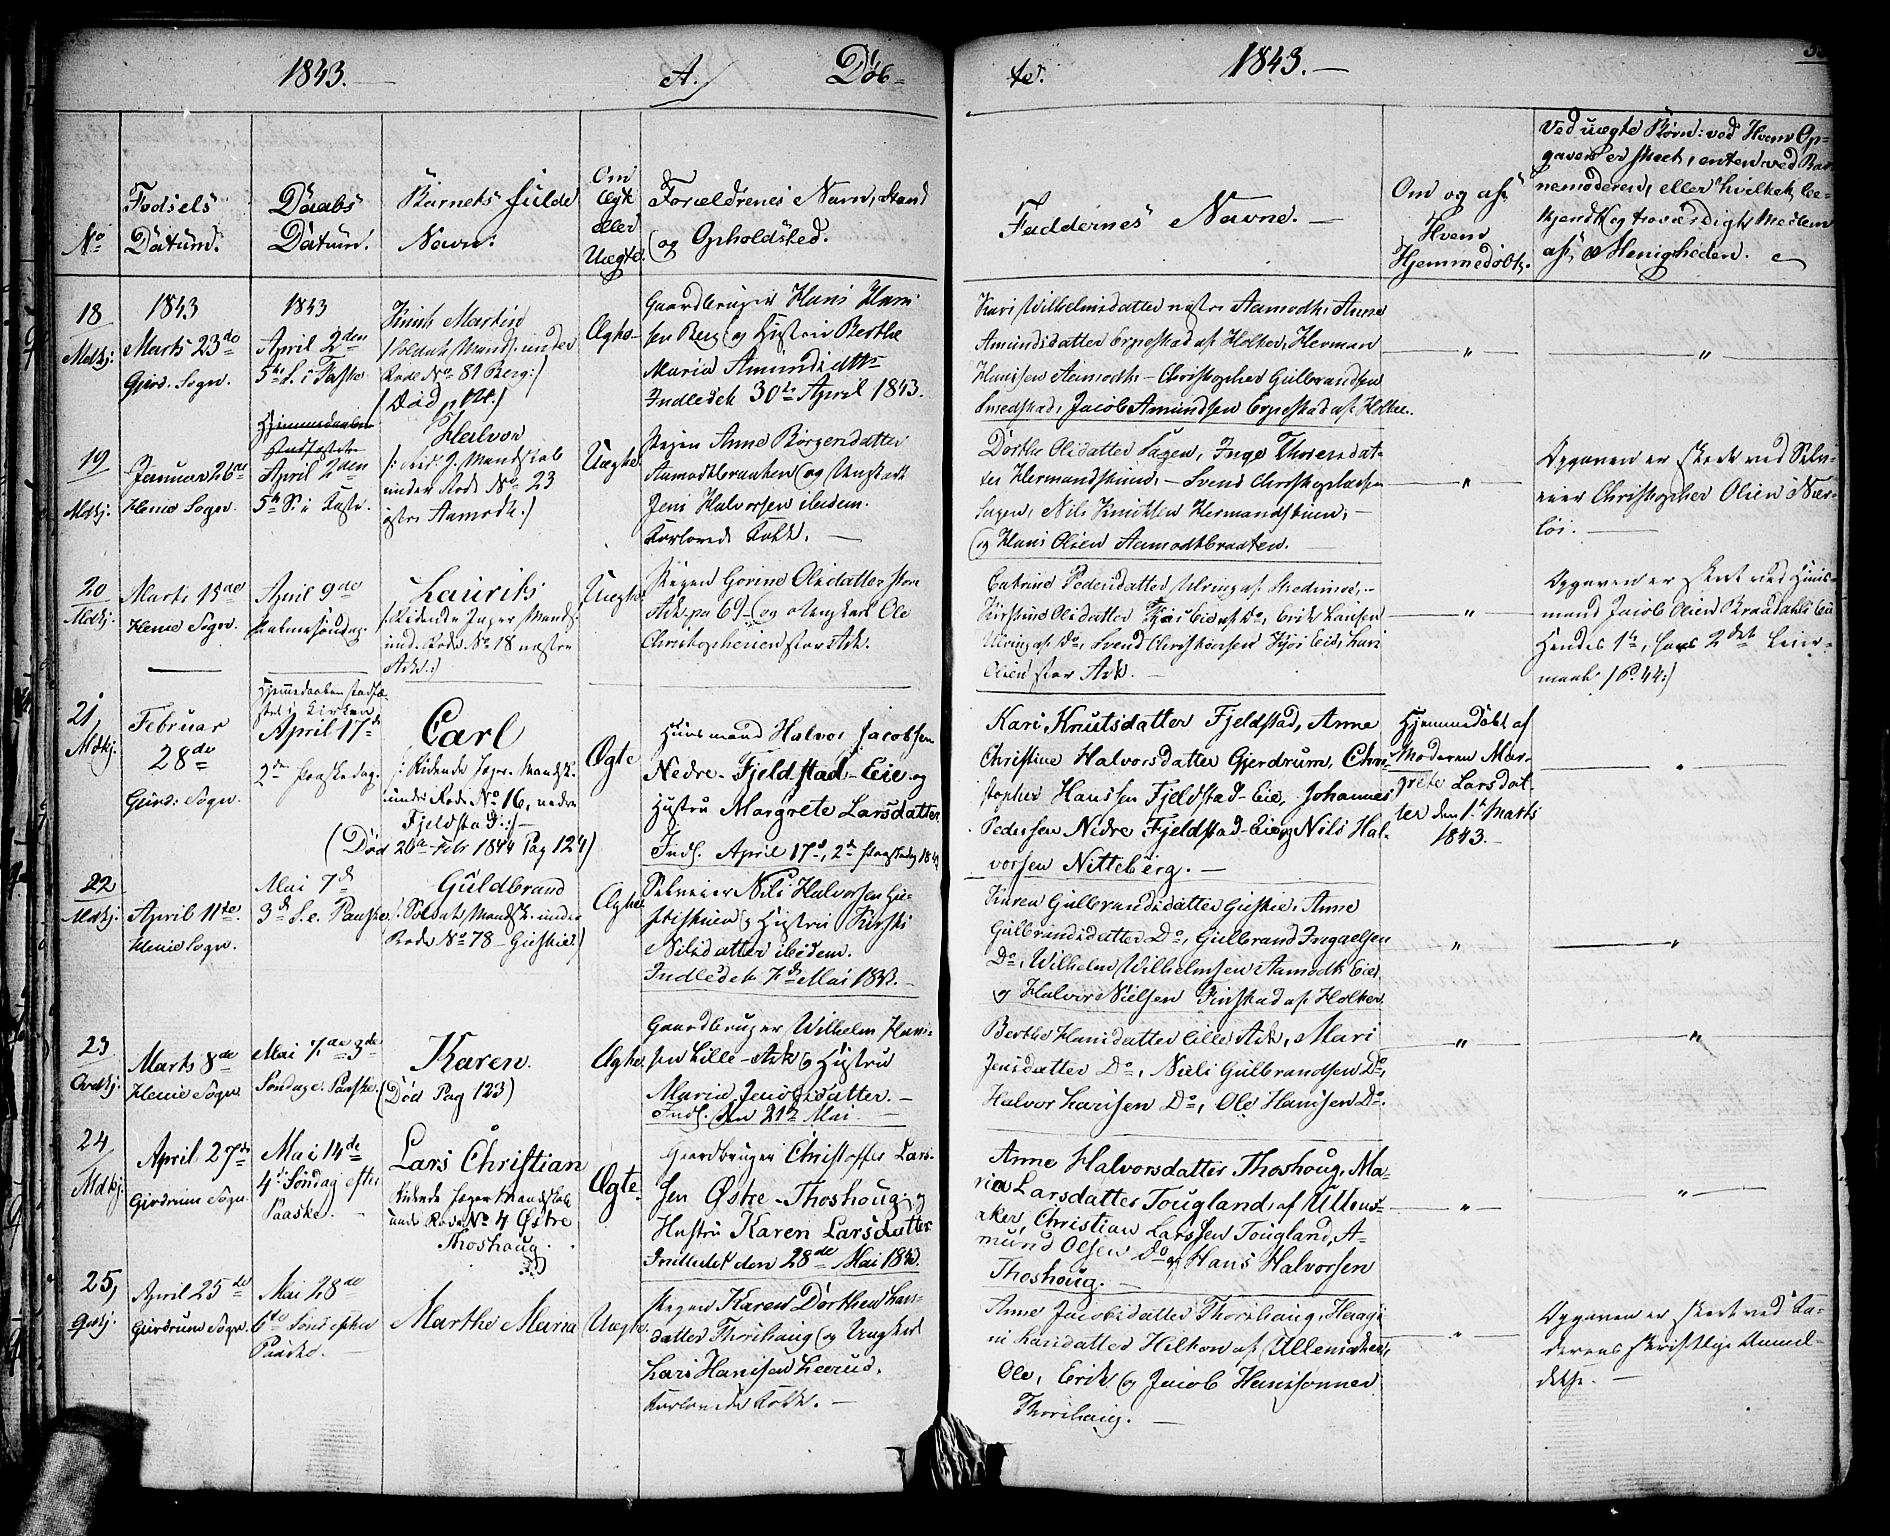 1843.
A.
Døb-
te.
1843.
No
Fødsels
Datum.
Daabs
Datum.
Barnets fulde
Navn:
Om
Ægte
eller
Uægte.
Forældrenes Navn, Stand
og Opholdsted.
Faddernes Navne.
Om og af
Hvem
Hjemmedøbt.
Ved uægte Børn: ved Hvem Op-
gaven er skeet, enten ved Bar-
nemoderen, eller hvilket be-
kjendt og troværdigt Medlem
af Menigheden.
18
Mdkj.
1843
Marts 23de
Gjerd. Sogn.
1843
April 2den
5te S. i Faste
Knut Martin
(Soldat Mandsk. under
Rode No 81 Berg:)
(Død
Ægte
Gaardbruger Hans Han-
sen Berg og Hustru Berthe
Maria Amundsdatter
Indledet 30te April 1843.
Kari Wilhelmsdatter østre Aamodt, Anne
Amundsdatter Erpestad af Holter, Herman
Hansen Aamodt - Christopher Gulbrandsen
Smedstad, Jacob Amundsen Erpestad af Holter.
19
Mdkj.
Januar 26de
Heni Sogn.
April 2den
5te S. i Faste.
Halvor
Mandskab
under Rode No 23
østre Aamodt.)
Uægte
Pigen Anne Børgersdatter
Aamodtbraaten og Ungkarl
Jens Halvorsen ibidem.
Dorthe Olsdatter Hagen, Inge Thoresdat-
ter Hermandstuen, - Svend Christophersen
Hagen, Nils Knutsen Hermandstuen,
og Hans Olsen Aamodtbraaten.
Opgaven er skeet ved Selv-
eier Christopher Olsen Nær-
20
Mdkj.
Marts 15de
Heni Sogn.
April 9de
Palmesøndag.
Laurits
(: Ridende Jæger Mandsk.
und. Rode No 18 nestre
Ask:)
Uægte
Pigen Gorine Olsdatter store
Ask og Ungkarl Ole
Christophersen store Ask.
Cathrine Pedersdatter Ulvung af
Kirstine Olsdatter Eie af Do, Erik Larsen
Ulvung af Do, Svend Christensen Eie, Lars
Olsen stor Ask.
Opgaven er skeet ved Huus-
mand Jacob Olsen
Hendes 1te, hans 2det Leier-
maal
21,
Mdkj.
Februar
28de
Gjerd: Sogn.
Hjemmedaaben stadfæ-
stet i Kirken
April 17de
2den Paaskedag.
Carl
(: Ridende Jæger Mandsk.
under Rode No 16, nedre
Fjeldstad:)
(Død 26de Febr 1844 Pag 124)
Ægte
Huusmand Halvor Jacobsen
Nedre-Fjeldstad-Eie og
Hustru Margrete Larsdatter
Indl. April 17de, 2den Paaskedag 1843
Kari Knutsdatter Fjeldstad, Anne
Christine Halvorsdatter Gjerdrum, Chri-
stopher Hanssen Fjeldstad-Eie, Johannes
Pedersen Nedre Fjeldstad-Eie og Nils Hal-
vorsen Nitteberg.
Hjemmedøbt af
Moderen Mar-
grete Larsdat-
ter den 1te Marts
1843.
22
Mdkj.
April 11te
Heni Sogn.
Mai 7de
3de S. e. Paaske
Guldbrand
(: Soldat Mandsk. under
Rode No 78 - Giestrie:)
Ægte
Selveier Nils Halvorsen
og Hustru Kirsti
Nilsdatter ibidem.
Indledet 7de Mai 1843.
Karen Gulbrandsdatter Anne
Gulbrandsdatter Do, Gulbrand Ingvelsen
Do, Wilhelm Wilhelmsen Aamodt Eie,
og Halvor Nielsen af Holter.
23
Qvdkj.
Marts 8de
Heni Sogn.
Mai 7de 3de
Søndag e. Paaske.
Karen.
(Død Pag 123)
Ægte.
Gaardbruger Wilhelm Han-
sen Lille-Ask og Hustru
Maria Jensdatter.
Indl. den 21de Mai.
Berthe Hansdatter lille Ask, Mari
Jensdatter Do, Niels Gulbrandsen Do,
Halvor Larsen Do, Ole Hansen Do.
24
Mdkj.
April 27de
Gjerdrum Sogn.
Mai 14de
4de Søndag efter
Paaske.
Lars Christian
Ridende Jæger Mandskab
under Rode No 4 Østre
Thoshoug.
Ægte.
Gaardbruger Christoffer Lars-
sen Østre-Thoshoug, og
Hustru Karen Larsdatter
Indledet den 28de Mai 1843.
Anne Halvorsdatter Thoshoug, Ma-
ria Larsdatter Tougland, af Ullens-
aker, Christian Larssen Tougland, A-
mund Olsen Do og Hans Halvorsen
Thoshoug.
25,
Qvdkj.
April 25de
Gjerdrum Sogn.
Mai 28de
6te Sønd. efter
Paaske.
Marthe Maria
Uægte.
Pigen Karen Dorthea Lars-
datter Thorshaug og Ungkarl
Lars Hansen Leerud.
Anne Jacobsdatter Thorshaug,
Larsdatter Hilton af Ullensaker,
Ole, Erik og Jacob Hanssønner
Thorshaug.
Opgaven er skeet ved Fa-
derens skriftlige Anmel-
delse.